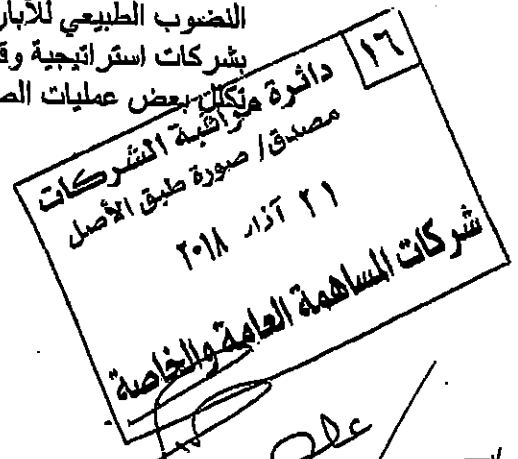 النضوب الطبيعي للآبار
بشركات استراتيجية وق
وتكلل بعض عمليات الص
١٦
دائرة مراقبة الشركات
مصدق / صورة طبق الأصل
٢١ آذار ٢٠١٨
شركات المساهمة العامة والخاصة